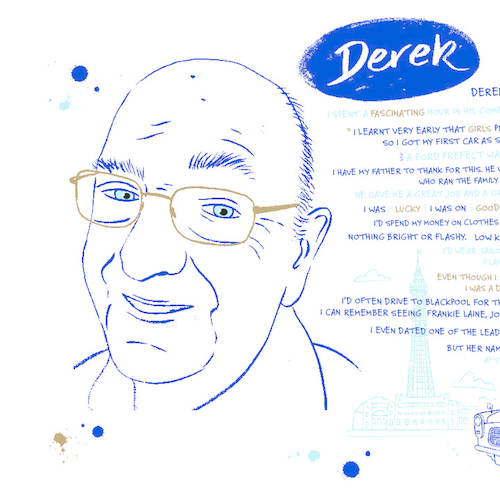 Derek
DEREK
I SPENT A FASCINATING HOUR IN HIS COM
" I LEARNT VERY EARLY THAT GIRLS P
SO I GOT MY FIRST CAR AS S
A FORD PREFECT WA
I HAVE MY FATHER TO THANK FOR THIS. HE
WHO RAN THE FAMILY
HE GAVE ME A GREAT JOB AND A G
I WAS LUCKY I WAS ON GOOD
I'D SPEND MY MONEY ON CLOTHES
NOTHING BRIGHT OR FLASHY. LOW K
I'D WEAR TAILO
FLA
EVEN THOUGH I
I WAS A D
I'D OFTEN DRIVE TO BLACKPOOL FOR TH
I CAN REMEMBER SEEING FRANKIE LAINE, JO
I EVEN DATED ONE OF THE LEAD
BUT HER NAM